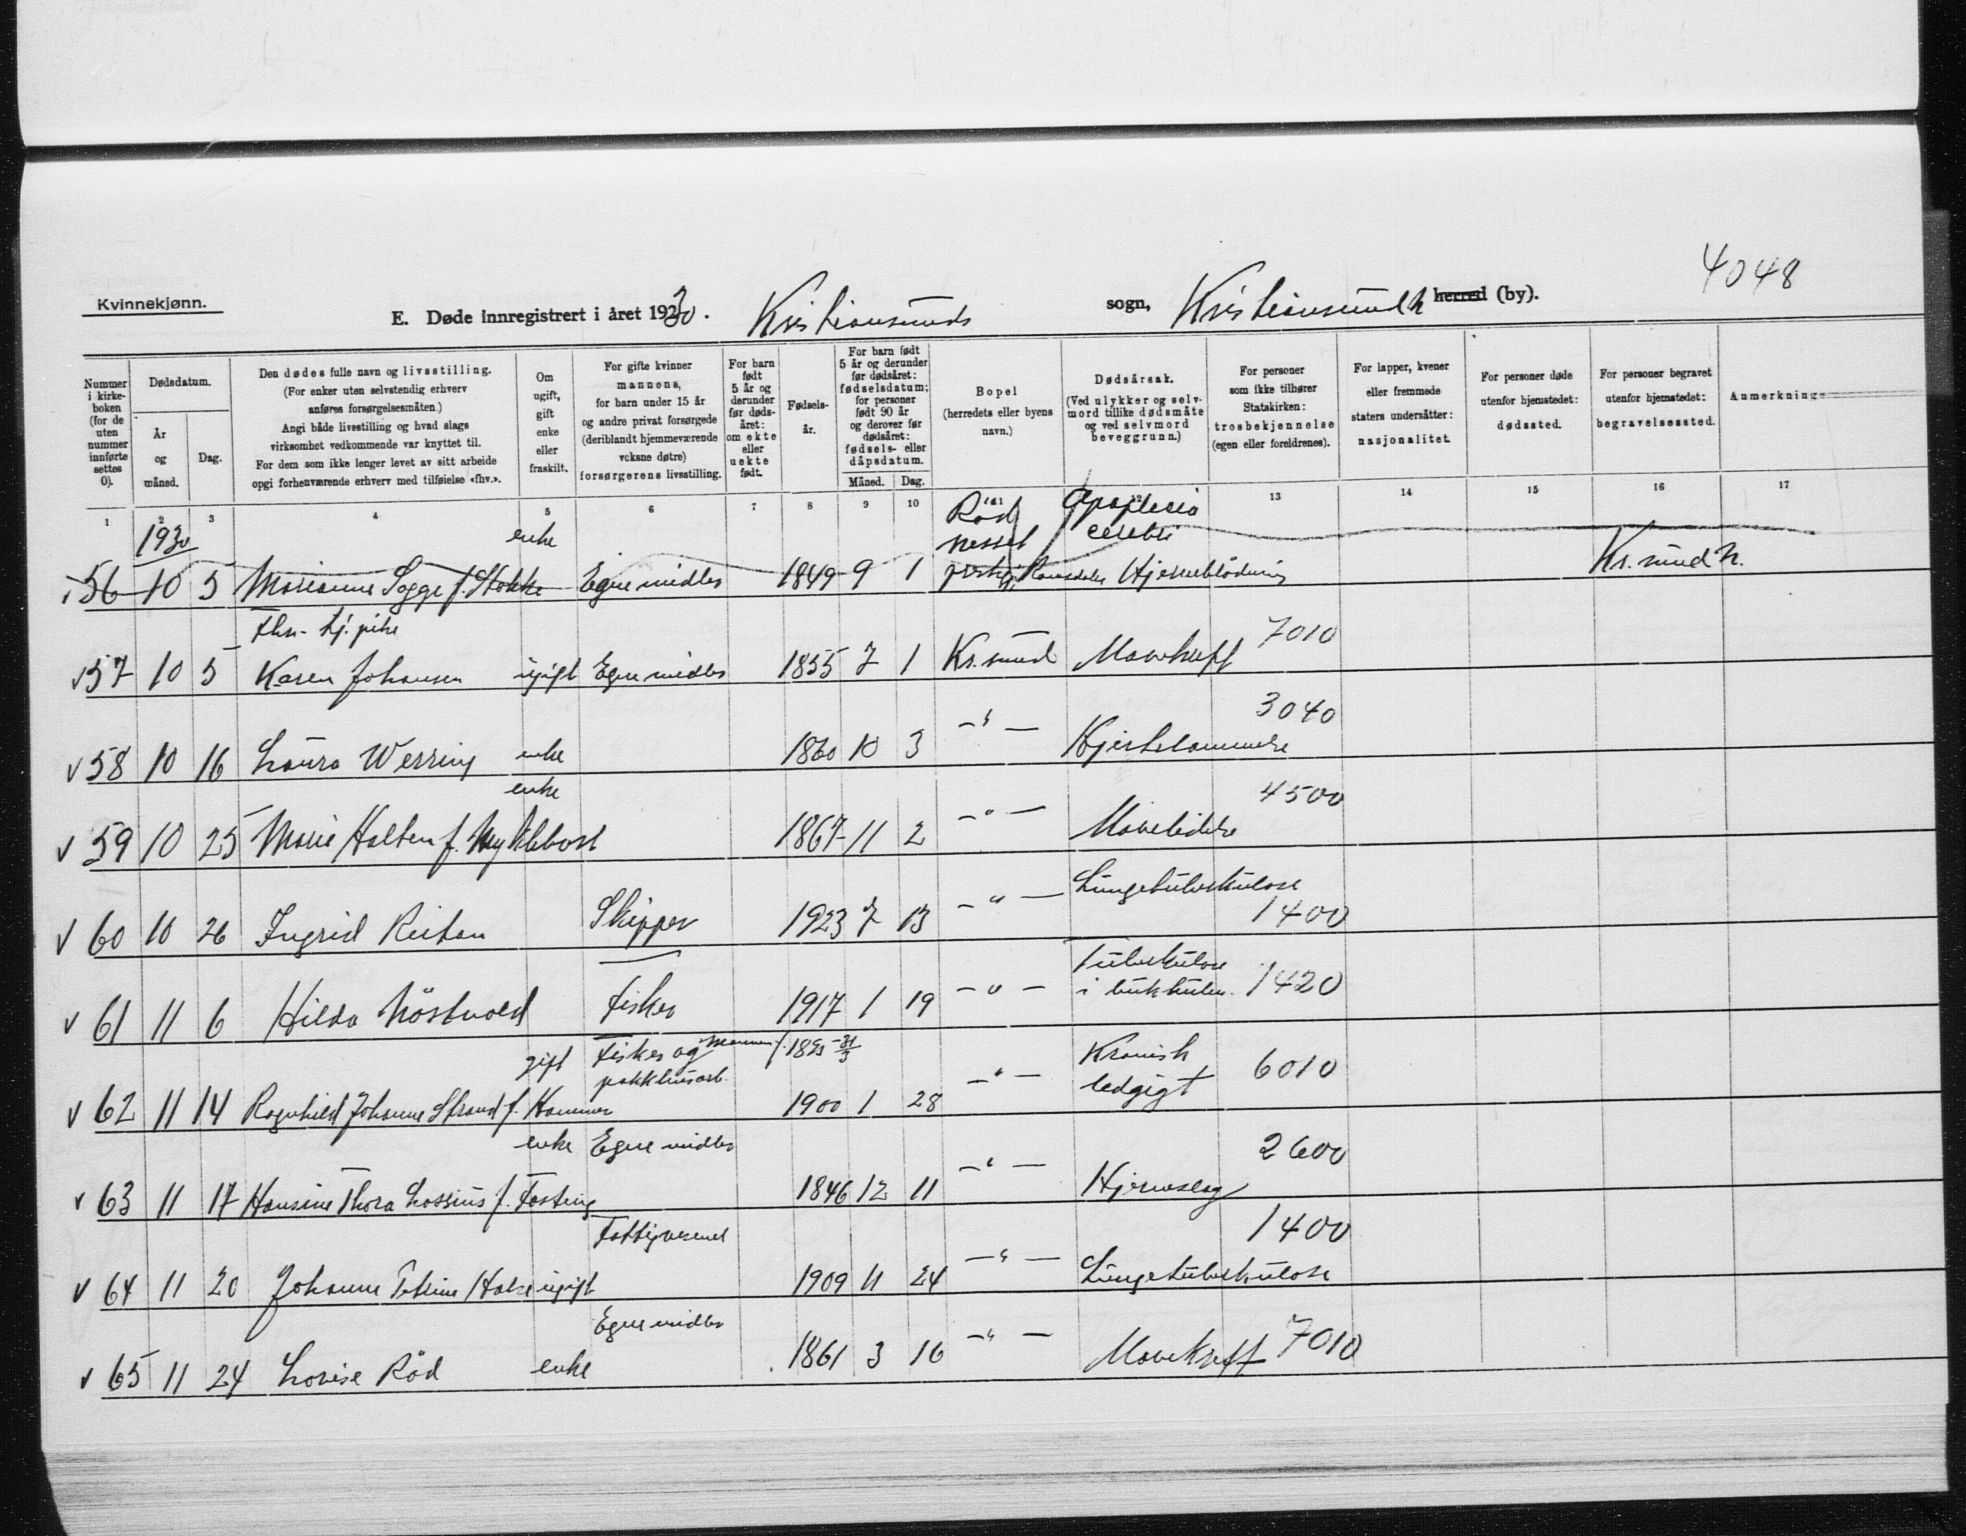 4048
Kvinnekjønn.
E. Døde innregistrert i året 1930. Kristiansunds sogn, Kristiansund N herred (by).
Nummer i kirke-boken (for de uten nummer innførte settes 0).
Dødsdatum.
År og måned.
Dag.
Den dødes fulle navn og livsstilling. (For enker uten selvstendig erhverv anføres forsørgelsesmåten.) Angi både livsstilling og hvad slags virksomhet vedkommende var knyttet til. For dem som ikke lenger levet av sitt arbeide opgi forhenværende erhverv med tilføielse «fhv.».
Om ugift, gift enke eller fraskilt.
For gifte kvinner mannens, for barn under 15 år og andre privat forsørgede (deriblandt hjemmeværende voksne døtre) forsørgerens livsstilling.
For barn født 5 år og derunder før døds-året: om ekte eller uekte født.
Fødsels-år.
For barn født 5 år og derunder før dødsåret: fødselsdatum; for personer født 90 år og derover før dødsåret: fødsels- eller dåpsdatum.
Måned. Dag.
Bopel (herredets eller byens navn.)
Dødsårsak. (Ved ulykker og selv-mord tillike dødsmåte og ved selvmord beveggrunn.)
For personer som ikke tilhører Statskirken: trosbekjennelse (egen eller foreldrenes).
For lapper, kvener eller fremmede staters undersåtter: nasjonalitet.
For personer døde utenfor hjemstedet: dødssted.
For personer begravet utenfor hjemstedet: begravelsessted.
Anmerkninger
1 2 3 4 5 6 7 8 9 10 11 12 13 14 15 16 17
1930 enke Rød Apoplexia
nesset cerebri
56 10 5 Marianne Sogge f. Stokke Egne midler 1849 9 1 prestegj. Romsdalen Hjerneblødning Kr.sund N.
Fhv. tj. pike 7010
57 10 5 Karen Johansen ugift Egne midler 1855 7 1 Kr.sund Mavekreft
3040
58 10 16 Laura Werring enke 1860 10 3 —"— Hjertelammelse
enke 4500
59 10 25 Marie Holten f. Myklebost 1867 11 2 —"— Mavelidelse
Lungetuberkulose
60 10 26 Ingrid Reitan Skipper 1923 7 13 —"— 1400
Tuberkulose
61 11 6 Hilda Nöstvold Fisker 1917 1 19 —"— i bukhulen. 1420
gift Fisker og mannen f. 1893 31/3 Kronisk
pakkhusarb. ledgigt 6010
62 11 14 Ragnhild Johanne Strand f. Hammer 1900 1 28 —"—
enke Egne midler 2600
63 11 17 Hansine Thora Lossius f. Fasting 1846 12 11 —"— Hjerneslag
Fattigvesenet 1400
64 11 20 Johanne Petrine Halse ugift 1909 11 24 —"— Lungetuberkulose
Egne midler
65 11 24 Lovise Röd enke 1861 3 16 —"— Mavekreft 7010